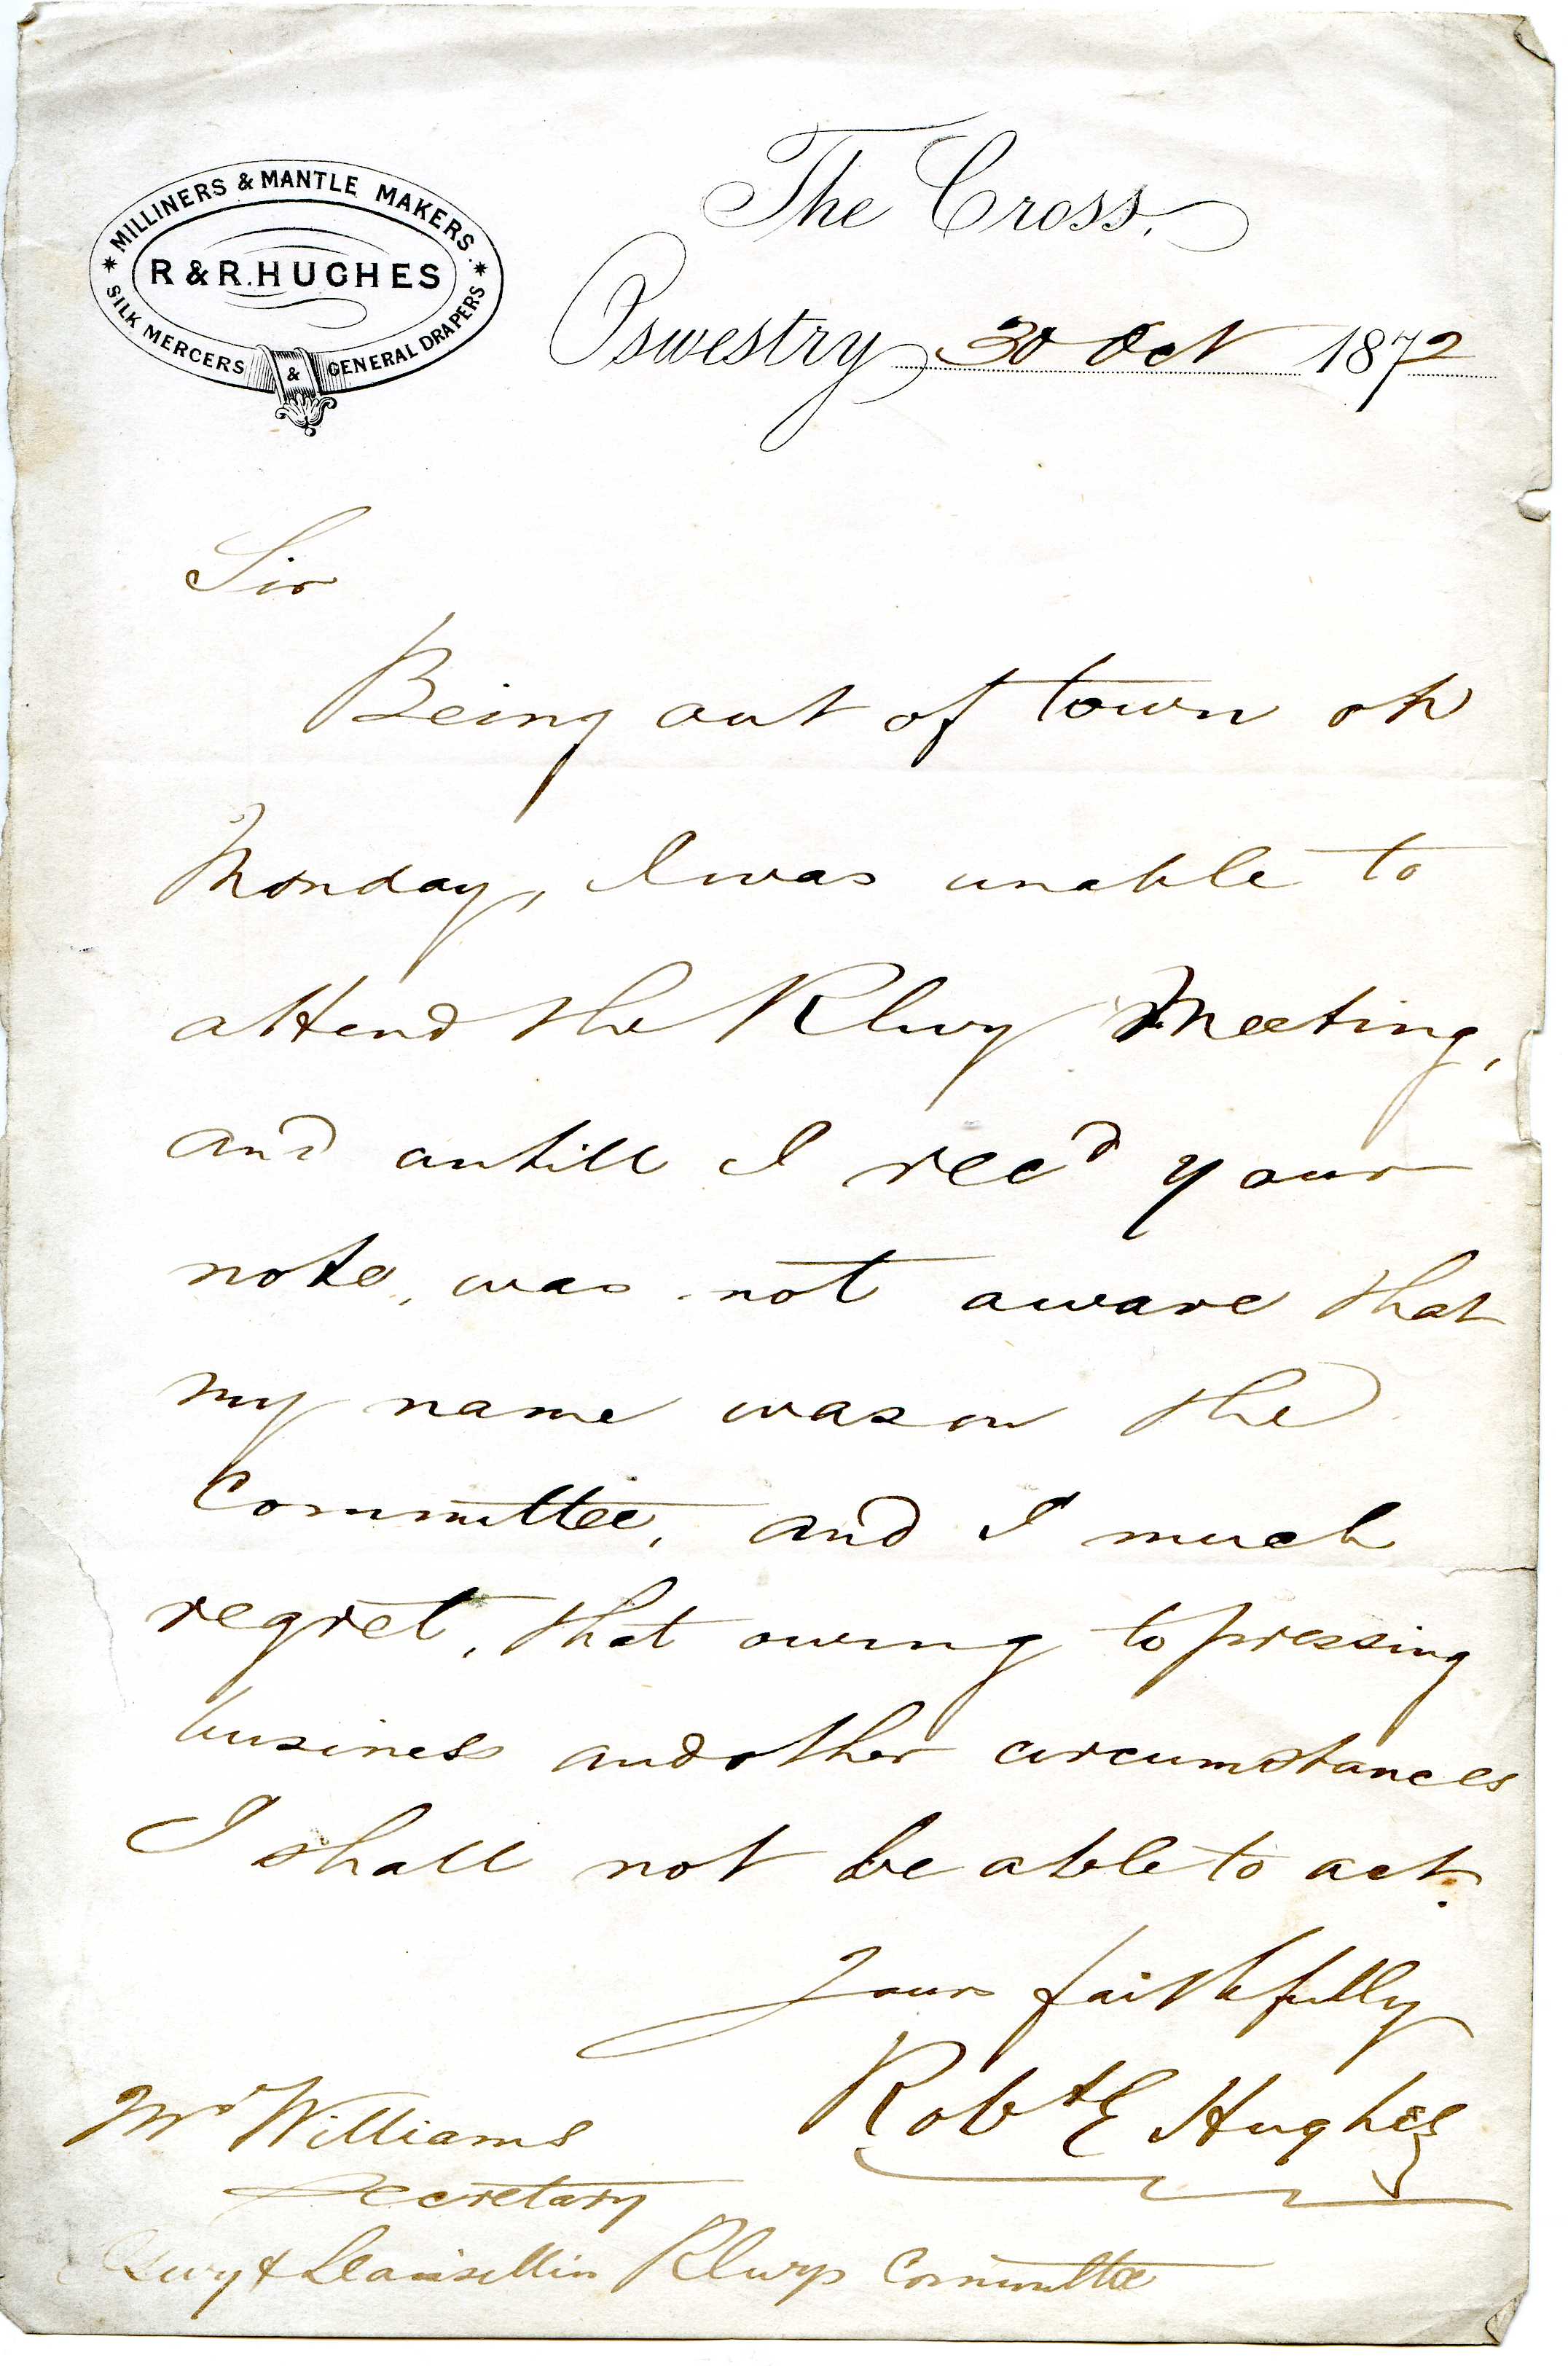 MILLINERS & MANTLE MAKERS.
R & R. HUGHES
SILK MERCERS & GENERAL DRAPERS
The Cross.
Oswestry 30 Oct 1872
Sir
Being out of town on
Monday, I was unable to
attend the Rlwy Meeting,
and untill I recd your
note, was not aware that
my name was on the
Committee, and I much
regret, that owing to pressing
business and other circumstances
I shall not be able to act.
Yours faithfully
Robt E Hughes
Mr Williams
Secretary
& Rlwys Committee